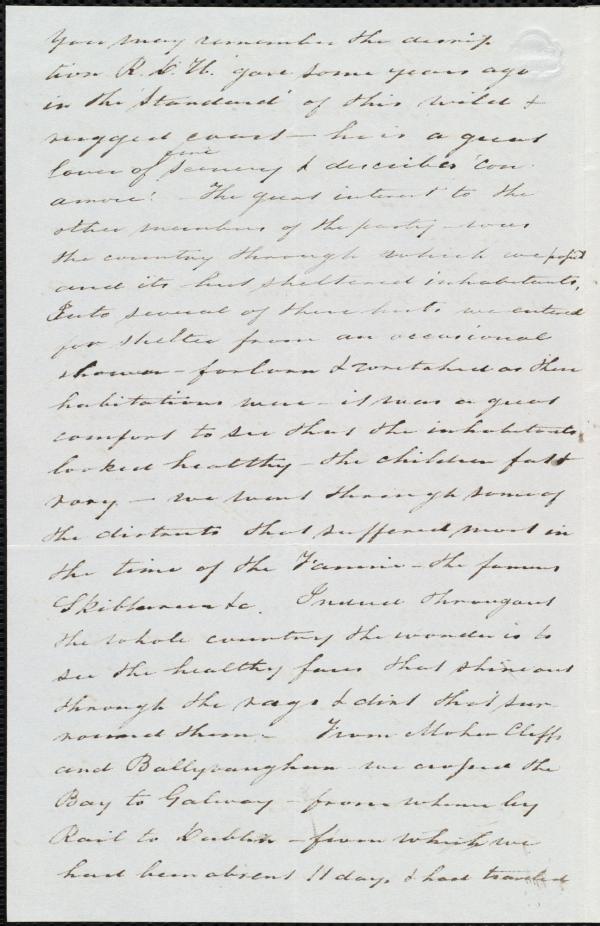 You may remember the descrip
tion R. D. W. gave some years ago
in the 'Standard' of this wild &
rugged coast — he is a great
lover of fine scenery & describes 'con
amore'. — The great interest to the
other members of the party — was
the country through which we passed
and its hut sheltered inhabitants,
Into several of these huts we entered
for shelter from an occasional
shower — forlorn & wretched as these
habitations were — it was a great
comfort to see that the inhabitants
looked healthy — the children fat &
rosy — we went through some of
the districts that suffered most in
the time of the Famine — the famous
Skibbereen &c. Indeed throughout
the whole country the wonder is to
see the healthy faces that shine out
through the rags & dirt that sur
round them — From Moher Cliffs
and Ballyvaughan we crossed the
Bay to Galway — from whence by
Rail to Dublin — from which we
had been absent 11 days, & had traveled